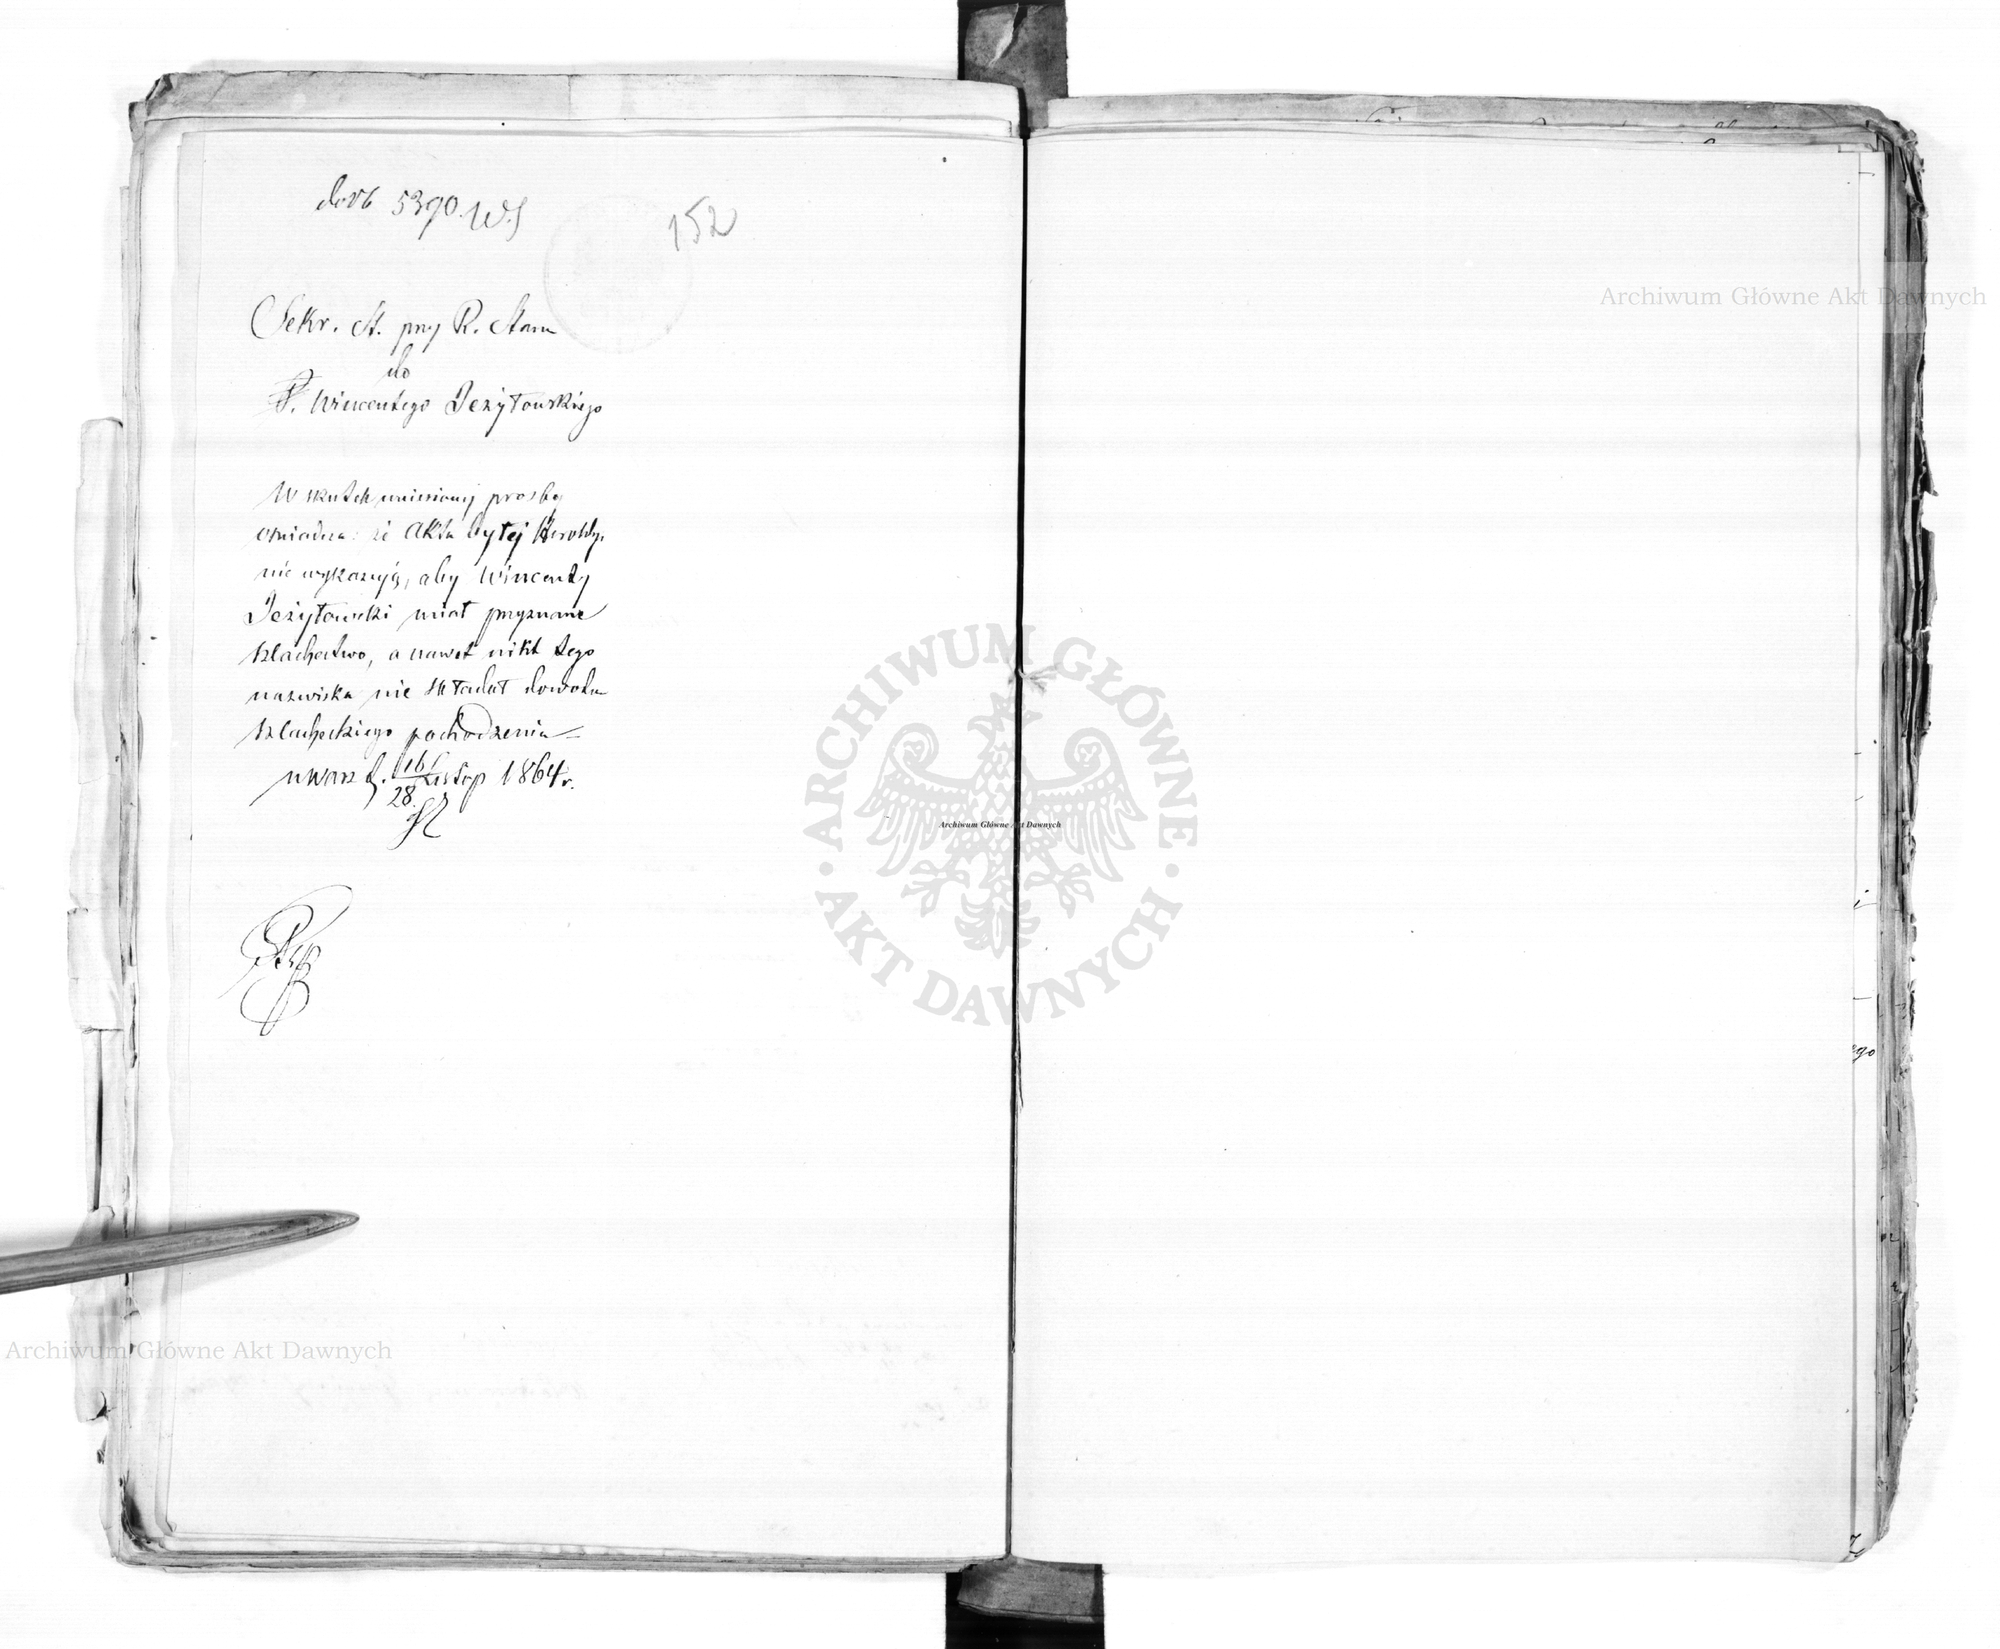 5390
152
Sekr. St. przy R. Stanu
do
P. Wincentego Jeżyłowskiego
W skutek wniesionej prośby
oświadcza: że Akta byłej Heroldyi
nie wykazują, aby Wincenty
Jeżyłowski miał przyznane
szlachectwo, a nawet nikt tego
nazwiska nie składał dowodu
szlacheckiego pochodzenia
w Warsz d. 16/28 Listop 1864 r.
ego
Archiwum Główne Akt Dawnych
ARCHIWUM GŁÓWNE AKT DAWNYCH
Archiwum Główne Akt Dawnych
Archiwum Główne Akt Dawnych